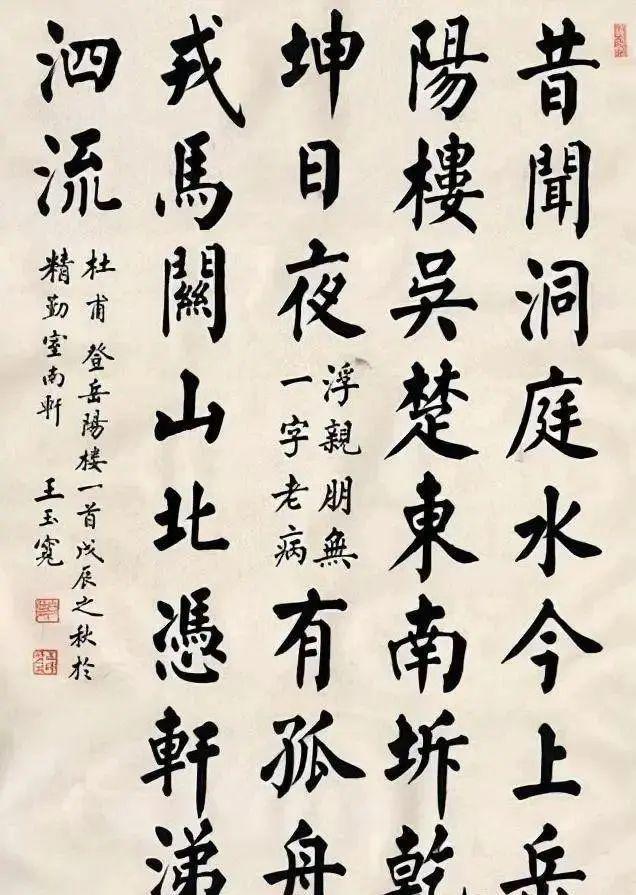 昔聞洞庭水今上岳
陽樓吳楚東南坼乾
坤日夜
浮親朋無
一字老病
有孤舟
戎馬關山北憑軒涕
泗流
杜甫登岳陽樓一首戊辰之秋於
精勤室南軒 王玉寬